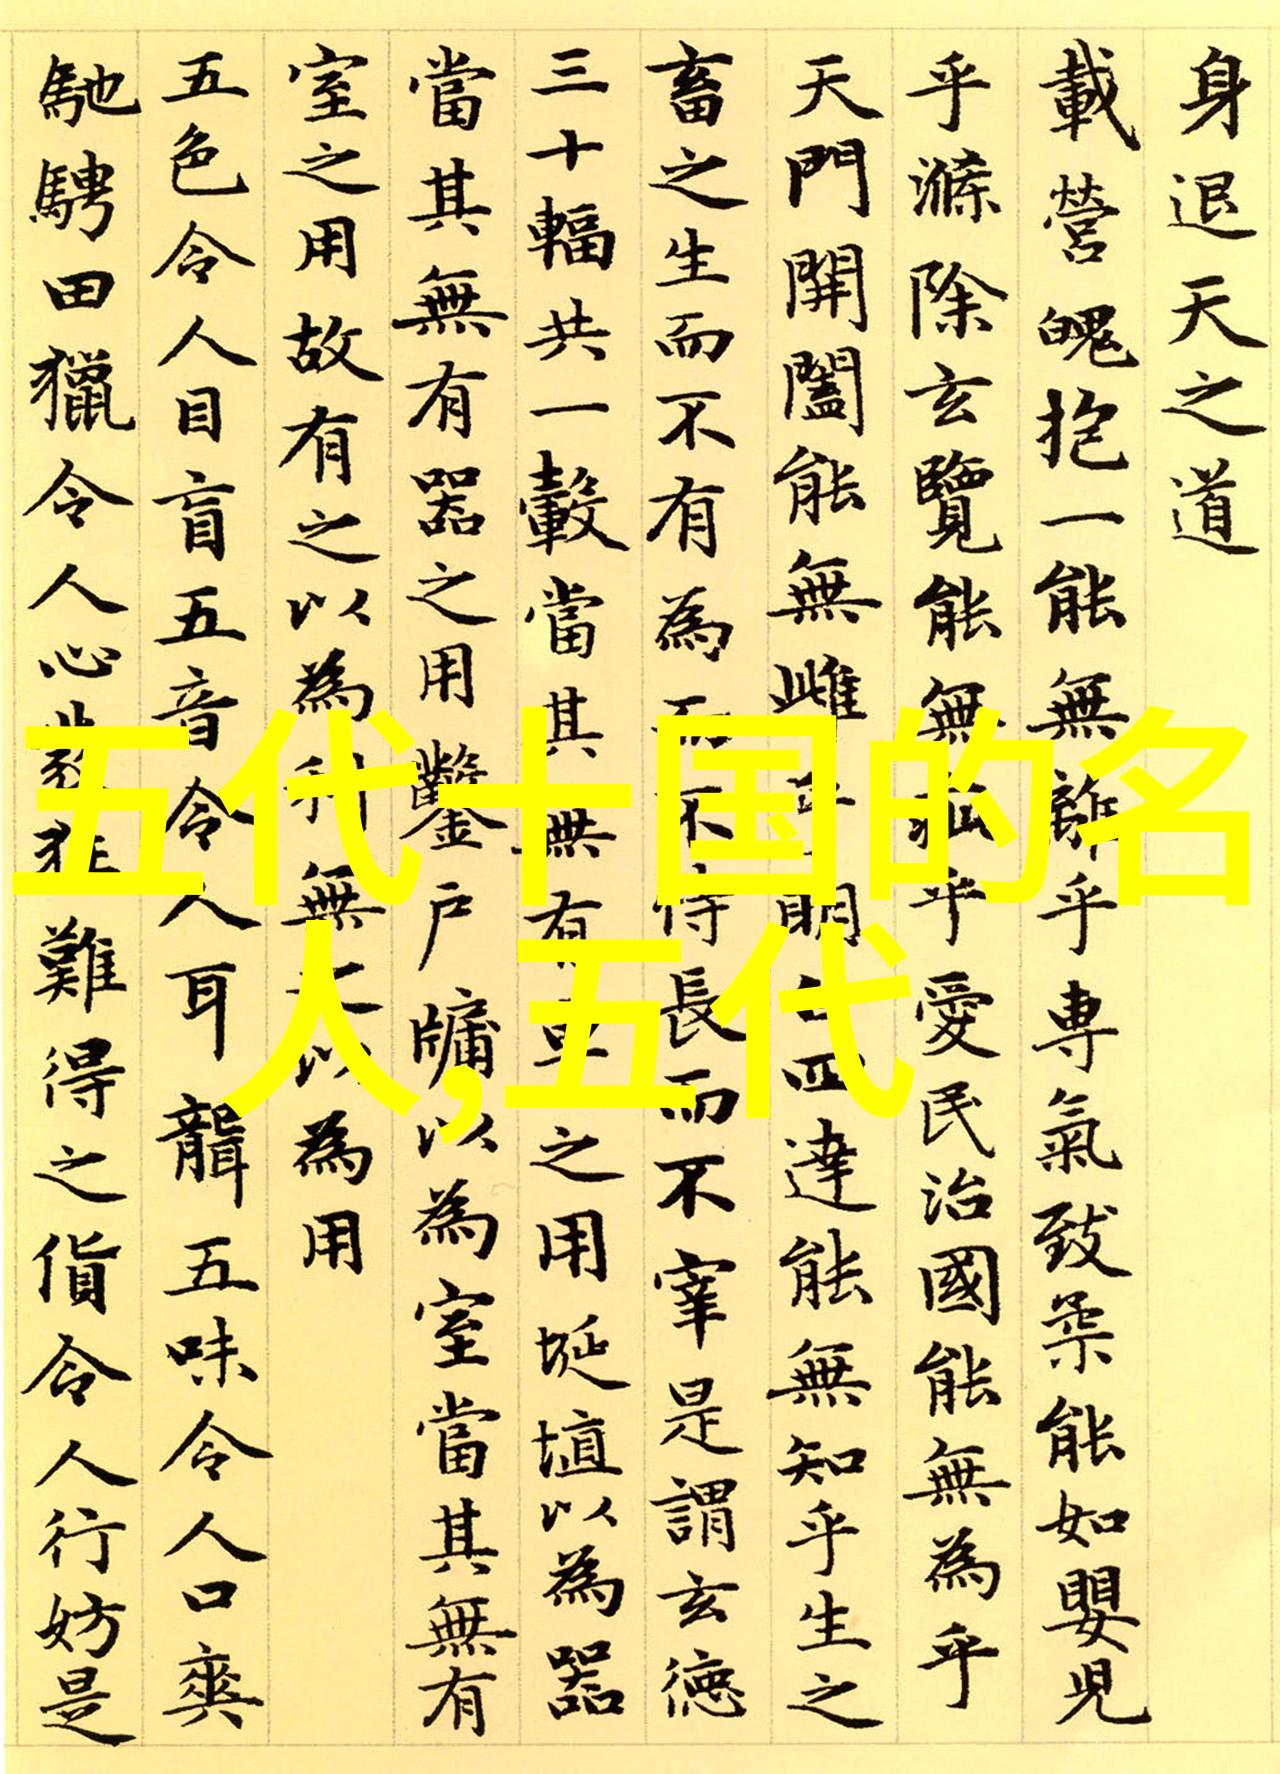 身退天之道
載營魄抱一能無離乎專氣致柔能如嬰児
乎滌除玄覽能無疵乎愛民治國能無為乎
天門開闔能無雌乎明白四達能無知乎生之
畜之生而不有為而不恃長而不宰是謂玄德
三十輻共一轂當其無有車之用埏埴以為器
當其無有器之用鑿戶牖以為室當其無有
室之用故有之以為利無之以為用
五色令人目盲五音令人耳聾五味令人口爽
馳騁田獵令人心發狂難得之貨令人行妨是
五代十国的名
人,五代